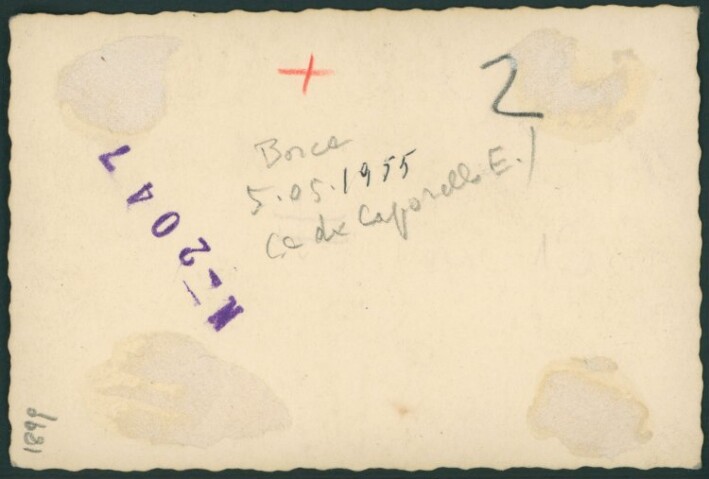 2
Borca
5.05.1955
Ca de Caporello E.
N-2047
1899